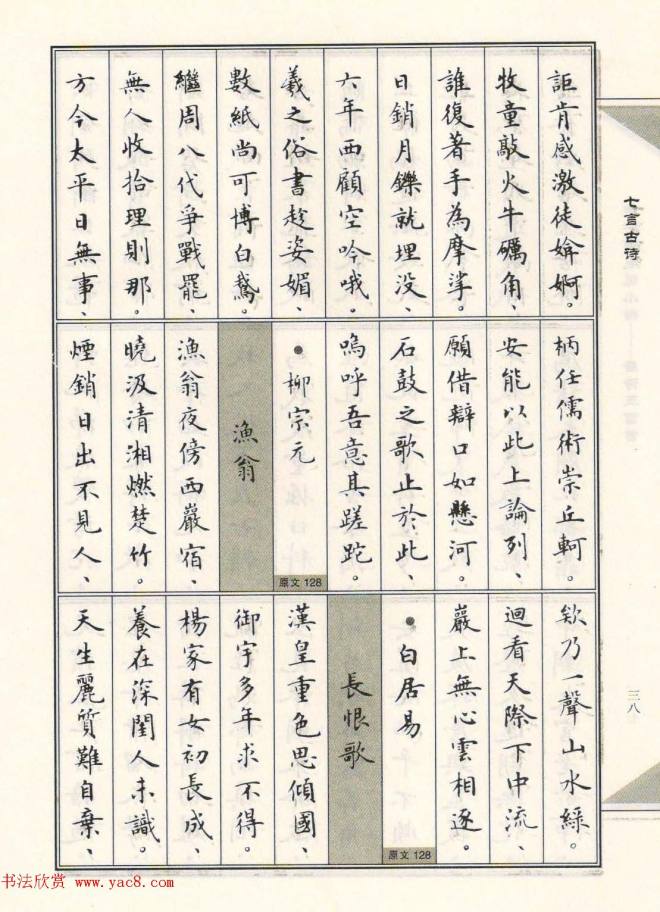 詎肯感激徒媕婀。
牧童敲火牛礪角、
誰復著手為摩挲。
日銷月鑠就埋没、
六年西顧空吟哦。
羲之俗書趁姿媚、
數紙尚可博白鵞。
繼周八代爭戰罷、
無人收拾理則那。
方今太平日無事、
柄任儒術崇丘軻。
安能以此上論列、
願借辯口如懸河。
石鼓之歌止於此、
嗚呼吾意其蹉跎。
●柳宗元
原文 128
漁翁
漁翁夜傍西巖宿、
曉汲清湘燃楚竹。
煙銷日出不見人、
欸乃一聲山水綠。
迴看天際下中流、
巖上無心雲相逐。
●白居易
原文 128
長恨歌
漢皇重色思傾國、
御宇多年求不得。
楊家有女初長成、
養在深閨人未識。
天生麗質難自棄、
七言古诗
三八
书法欣赏 www.yac8.com